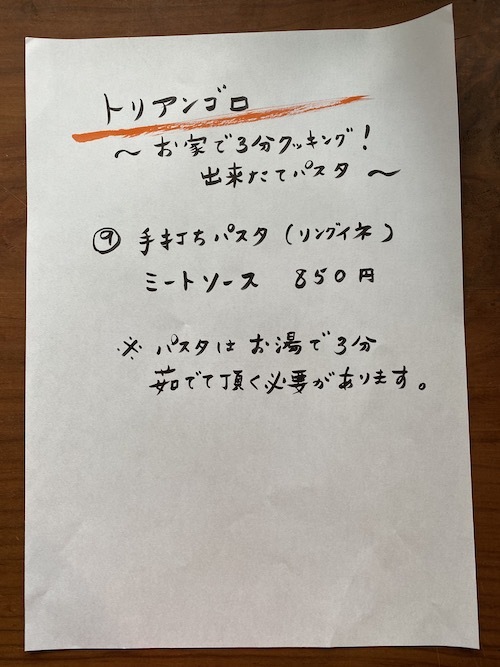 トリアンゴロ
～お家で3分クッキング!
出来たてパスタ～
⑨ 手打ちパスタ(リングイネ)
ミートソース 850円
※ パスタは お湯で3分
茹でて頂く必要があります。